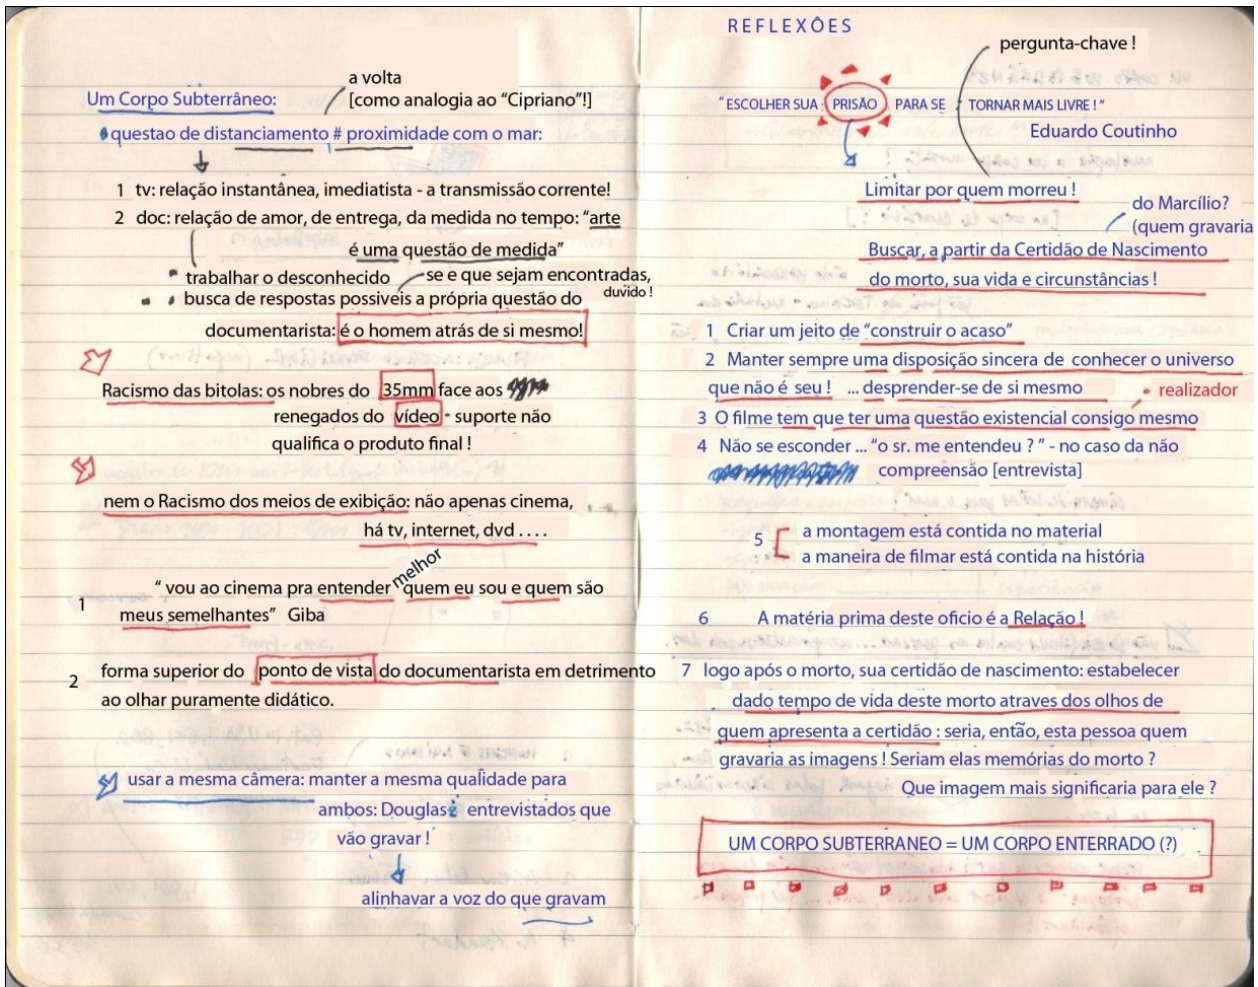 a volta
Um Corpo Subterrâneo: [como analogia ao "Cipriano"!]
questao de distanciamento # proximidade com o mar:
1 tv: relação instantânea, imediatista - a transmissão corrente!
2 doc: relação de amor, de entrega, da medida no tempo: "arte
é uma questão de medida"
trabalhar o desconhecido se e que sejam encontradas,
duvido !
busca de respostas possiveis a própria questão do
documentarista: é o homem atrás de si mesmo!
Racismo das bitolas: os nobres do 35mm face aos
renegados do vídeo - suporte não
qualifica o produto final !
nem o Racismo dos meios de exibição: não apenas cinema,
há tv, internet, dvd . . . .
melhor
1 " vou ao cinema pra entender quem eu sou e quem são
meus semelhantes" Giba
2 forma superior do ponto de vista do documentarista em detrimento
ao olhar puramente didático.
usar a mesma câmera: manter a mesma qualidade para
ambos: Douglas e entrevistados que
vão gravar !
alinhavar a voz do que gravam
REFLEXÔES
pergunta-chave !
" ESCOLHER SUA PRISÃO PARA SE TORNAR MAIS LIVRE ! "
Eduardo Coutinho
Limitar por quem morreu !
do Marcílio?
(quem gravaria
Buscar, a partir da Certidão de Nascimento
do morto, sua vida e circunstâncias !
1 Criar um jeito de "construir o acaso"
2 Manter sempre uma disposição sincera de conhecer o universo
que não é seu ! ... desprender-se de si mesmo
realizador
3 O filme tem que ter uma questão existencial consigo mesmo
4 Não se esconder ... "o sr. me entendeu ? " - no caso da não
compreensão [entrevista]
5 [ a montagem está contida no material
a maneira de filmar está contida na história
6 A matéria prima deste oficio é a Relação !
7 logo após o morto, sua certidão de nascimento: estabelecer
dado tempo de vida deste morto atraves dos olhos de
quem apresenta a certidão : seria, então, esta pessoa quem
gravaria as imagens ! Seriam elas memórias do morto ?
Que imagem mais significaria para ele ?
UM CORPO SUBTERRANEO = UM CORPO ENTERRADO (?)